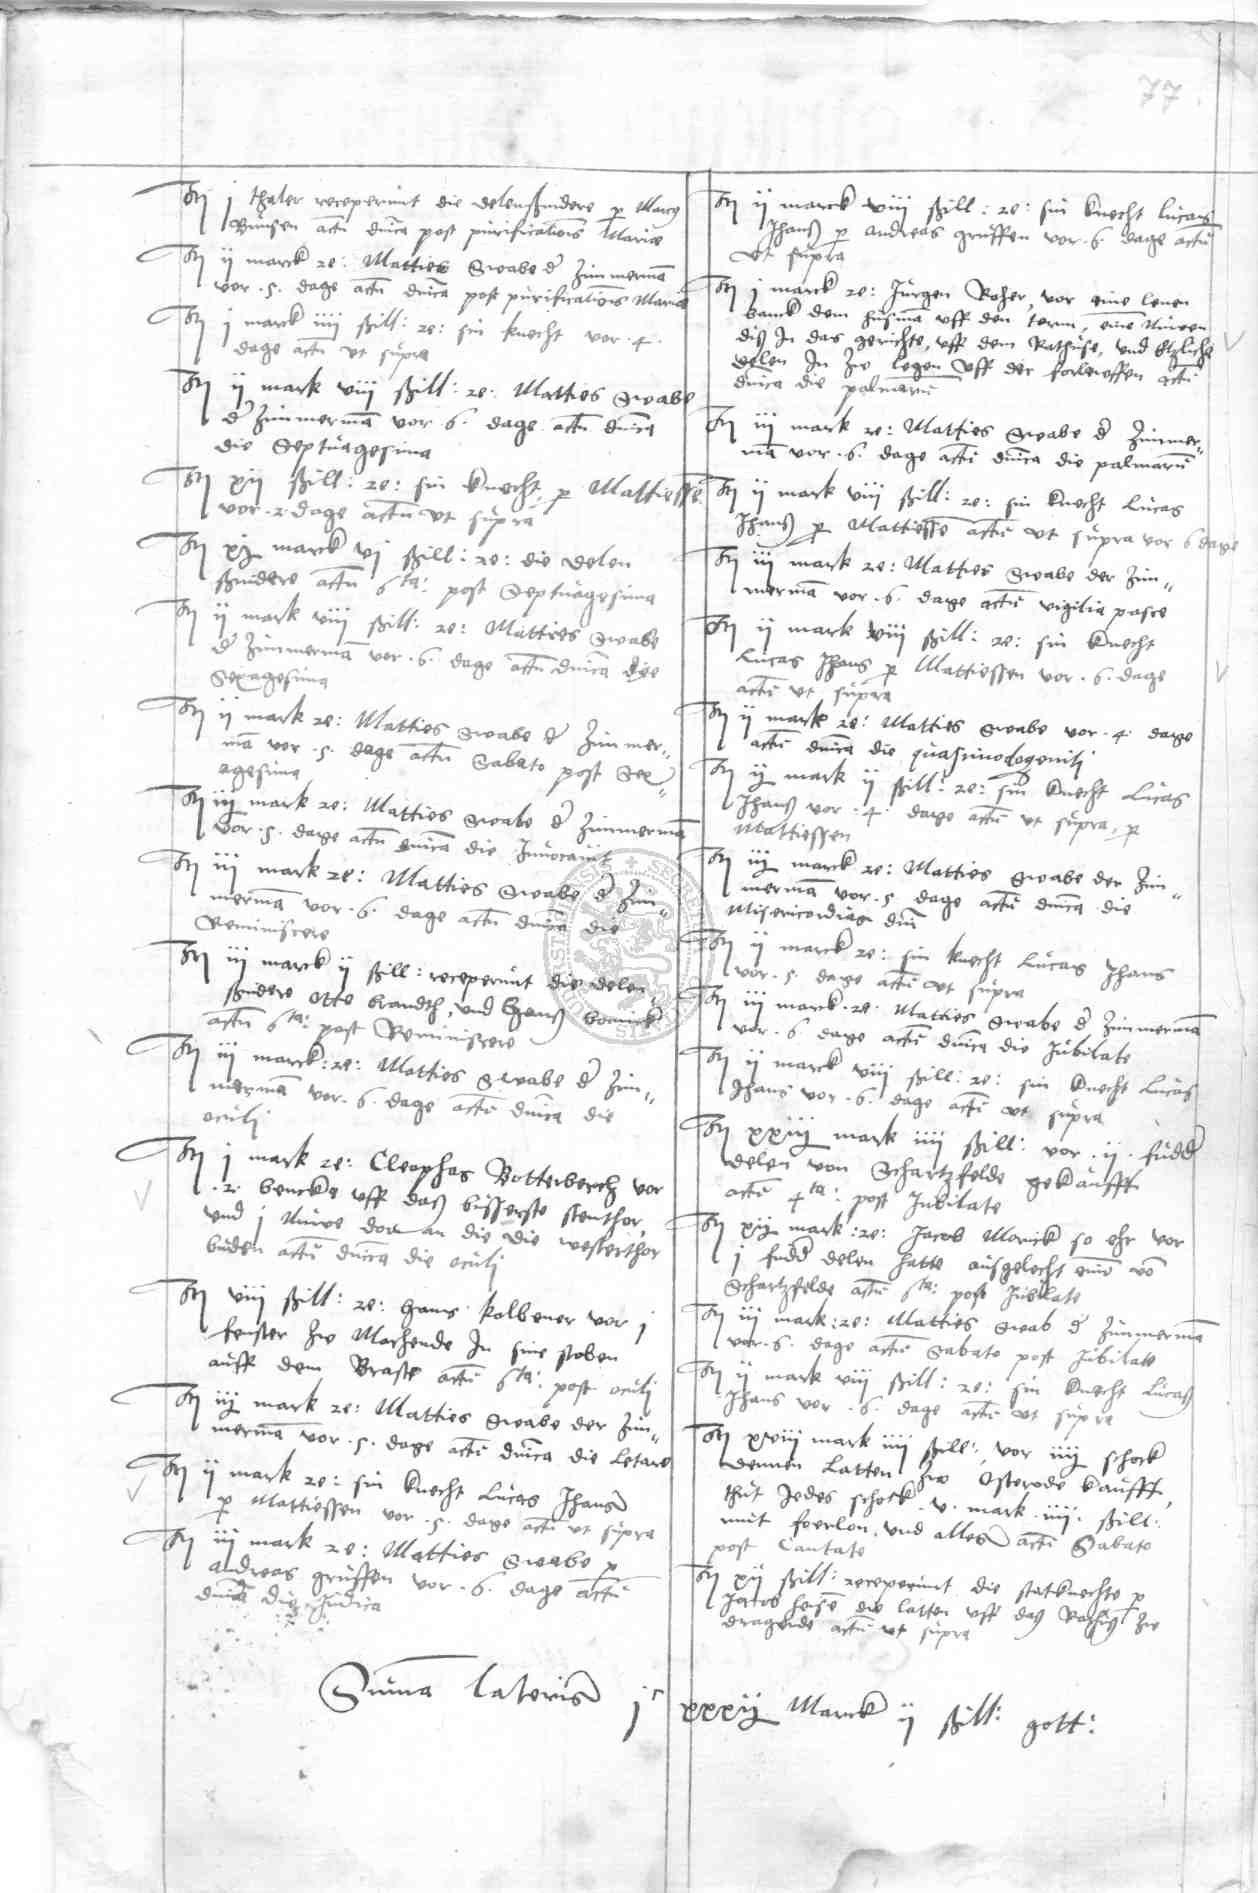 77
It j thaler receperunt die delensnidere p Marcy
Bunsen actu dnica post purificationis Mariae
It ij marck re: Matties Swabe d Zimmerma
vor .5. dage actu dnica post purificationis Mariae
It j marck iiij ßill: re: sin knecht vor .4.
dage actu ut supra
It ij mark viij ßill: re: Matties Swabe
d Zimmerma vor 6. dage actu dnica
die Septuagesima
It xij ßill: re: sin knecht, p Mattiesse
vor .2. dage actu ut supra
It marck vj ßill: re: die delen
snidere actu 6ta: post Septuagesima
It ij mark viij ßill: re: Matties Swabe
d Zimmerma vor .6. dage actu dnica die
Sexagesima
It ij mark re: Matties Swabe d Zimmer-
ma vor .5. dage actu Sabato post Sex-
agesima
It iij mark re: Matties Swabe d Zimmerma
vor .5. dage actu dnica die Invocavit
It iij mark re: Matties Swabe d Zim-
merma vor .6. dage actu dnica die
Reminiscere
It iij marck ij ßill: receperunt die delen-
snidere Otte brandth, und Hans
actu 6ta: post Reminiscere
It iij marck: re: Matties Swabe d Zim-
merma vor .6. dage actu dnica die
oculj
It j mark re: Cleophas Botterberch vor
.2. bencke uff das busserste stenthor,
und j Nuwe dor an die die westerthor
buden actu dnica die oculj
It viij ßill: re: Hans kolbener vor j
fenster zw Machende In sine stoben
auff dem actu 6ta: post oculj
It iij mark re: Matties Swabe der Zim-
merma vor .5. dage actu dnica die Letare
It ij mark re: sin knecht Lucas Jhans
p Mattiessen vor .5. dage actu ut supra
It iij mark re: Matties Swabe p
andreas gruffen vor .6. dage actu
dnica die Judica
It ij marck viij ßill: re: sin knecht lucas
Jhans p andreas gruffen vor .6. dage actu
ut supra
It j marck re: Jurgen Roher, vor eine lenen
banck dem husma uff den torm, eine Nuwen
disz In das gerichte, uff dem Rathuse, und etzliche
delen In zw legen uff der actu
dnica die palmaru
It iij mark re: Matties Swabe d Zimmer-
ma vor .6. dage actu dnica die palmaru
It ij mark viij ßill: re: sin knecht Lucas
Jhans p Mattiesse actu ut supra vor 6 dage
It iij mark re: Matties Swabe der Zim-
merma vor .6. dage actu vigilia pasce
It ij mark viij ßill: re: sin knecht
Lucas Jhans p Mattiessen vor .6. dage
actu ut supra
It ij mark re: Matties Swabe vor .4. dage
actu dnica die quasimodogenitj
It ij mark ij ßill: re: sin knecht Lucas
Jhans vor .4. dage actu ut supra, p
Mattiessen
It iij marck re: Matties Swabe der Zim-
merma vor .5. dage actu dnica die
Misericordias dni
It ij marck re: sin knecht Lucas Jhans
vor .5. dage actu ut supra
It iij marck .re. Matties Swabe d Zimmerma
vor .6. dage actu dnica die Jubilate
It ij marck viij ßill: re: sin knecht Lucas
Jhans vor .6. dage actu ut supra
It xxiij mark iiij ßill: vor .ij. fudd
delen von Schartzfelde gekaufft
actu 4ta: post Jubilate
It xij mark :re: Jacob Monick so ehr vor
j fudd delen hatte ausgelecht eine vo
Schartzfelde actu 6ta: post Jubilate
It iij mark :re: Matties Swab d Zimmerma
vor .6. dage actu Sabato post Jubilate
It ij mark viij ßill: re: sin knecht Lucas
Jhans vor .6. dage actu ut supra
It xviij mark iiij ßill:, vor iiij schock
dennen Latten zw Osterode kaufft,
thut Jedes schock .v. mark .iiij. ßill:
mit foerlon, und alles actu Sabato
post Cantate
It xij ßill: receperunt die statknechte p
Jacob die latten uff das Rathus zw
dragende actu ut supra
Suma lateris jc xxxij Marck ij ßill: gott: